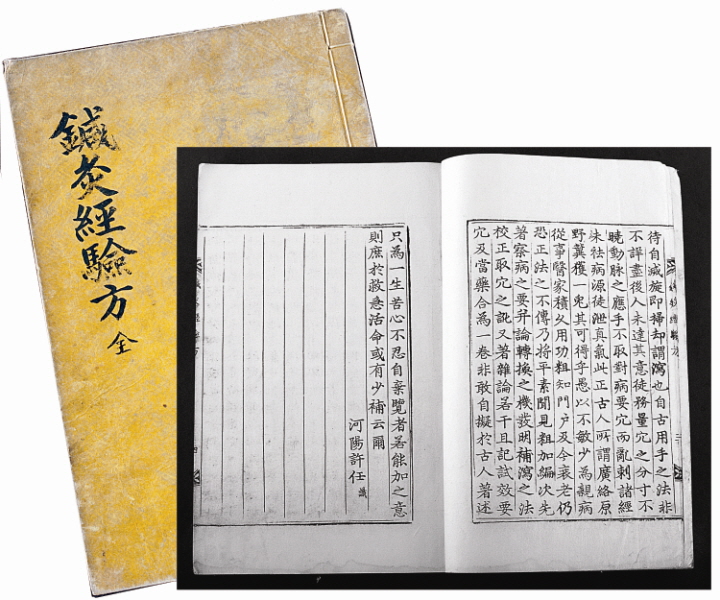 鍼灸經驗方 全
待自減旋即掃却謂瀉也自古用手之法非
不詳盡後人未達其意徒務量穴之分寸不
曉動脉之應手不取對病要穴而亂刺諸經
未祛病源徒泄真氣此正古人所謂廣絡原
野冀獲一兎其可得乎愚以不敏少為親病
從事醫家積久用功粗知門戶及今衰老仍
恐正法之不傳乃將平素聞見粗加編次先
著察病之要并論轉換之機發明補瀉之法
校正取穴之訛又著雜論若干且記試效要
穴及當藥合為一卷非敢自擬於古人著述
只為一生苦心不忍自棄覽者若能加之意
則庶於救急活命或有少補云爾
河陽許任識